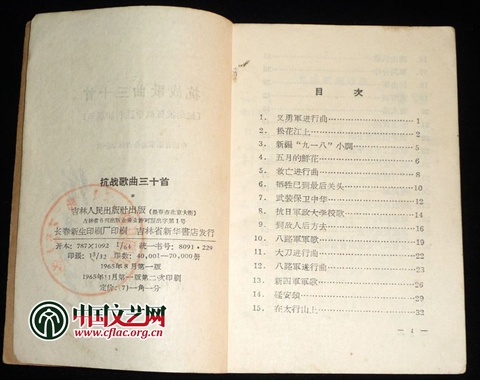 抗战歌曲三十首
吉林人民出版社出版
长春新生印刷厂印刷 吉林省新华书店发行
开本：787×1092 1/64 统一书号：8091·229
印数：40,001—70,000册
1965年8月第一版
1965年11月第一版第二次印刷
定价：(7)一角一分
中国文艺网
www.cflac.org.cn
目次
1. 义勇軍进行曲 1
2. 松花江上 2
3. 新編“九一八”小調 5
4. 五月的鮮花 6
5. 救亡进行曲 8
6. 牺牲已到最后关头
7. 武装保卫中华
8. 抗日軍政大学校歌
9. 到敌人后方去 17
10. 八路軍軍歌
11. 大刀进行曲 22
12. 八路軍进行曲
13. 新四軍軍歌 26
14. 延安頌 29
15. 在太行山上 32